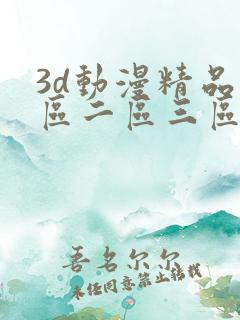 3d動漫精品
區二區三區
吾名尔尔
未经同意禁止转载